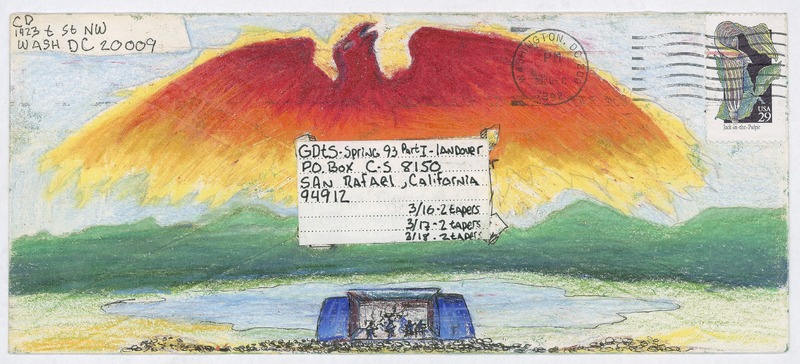 CD
1923 t St NW
WASH DC 20009
WASHINGTON, DC
PM
1992
USA
29
Jack-in-the-Pulpit
GDtS-Spring 93 Part I-landover
P.O. Box C-S 8150
SAN RAfAEl, California
94912
3/16-2 tapers
3/17-2 tapers
3/18-2 tapers